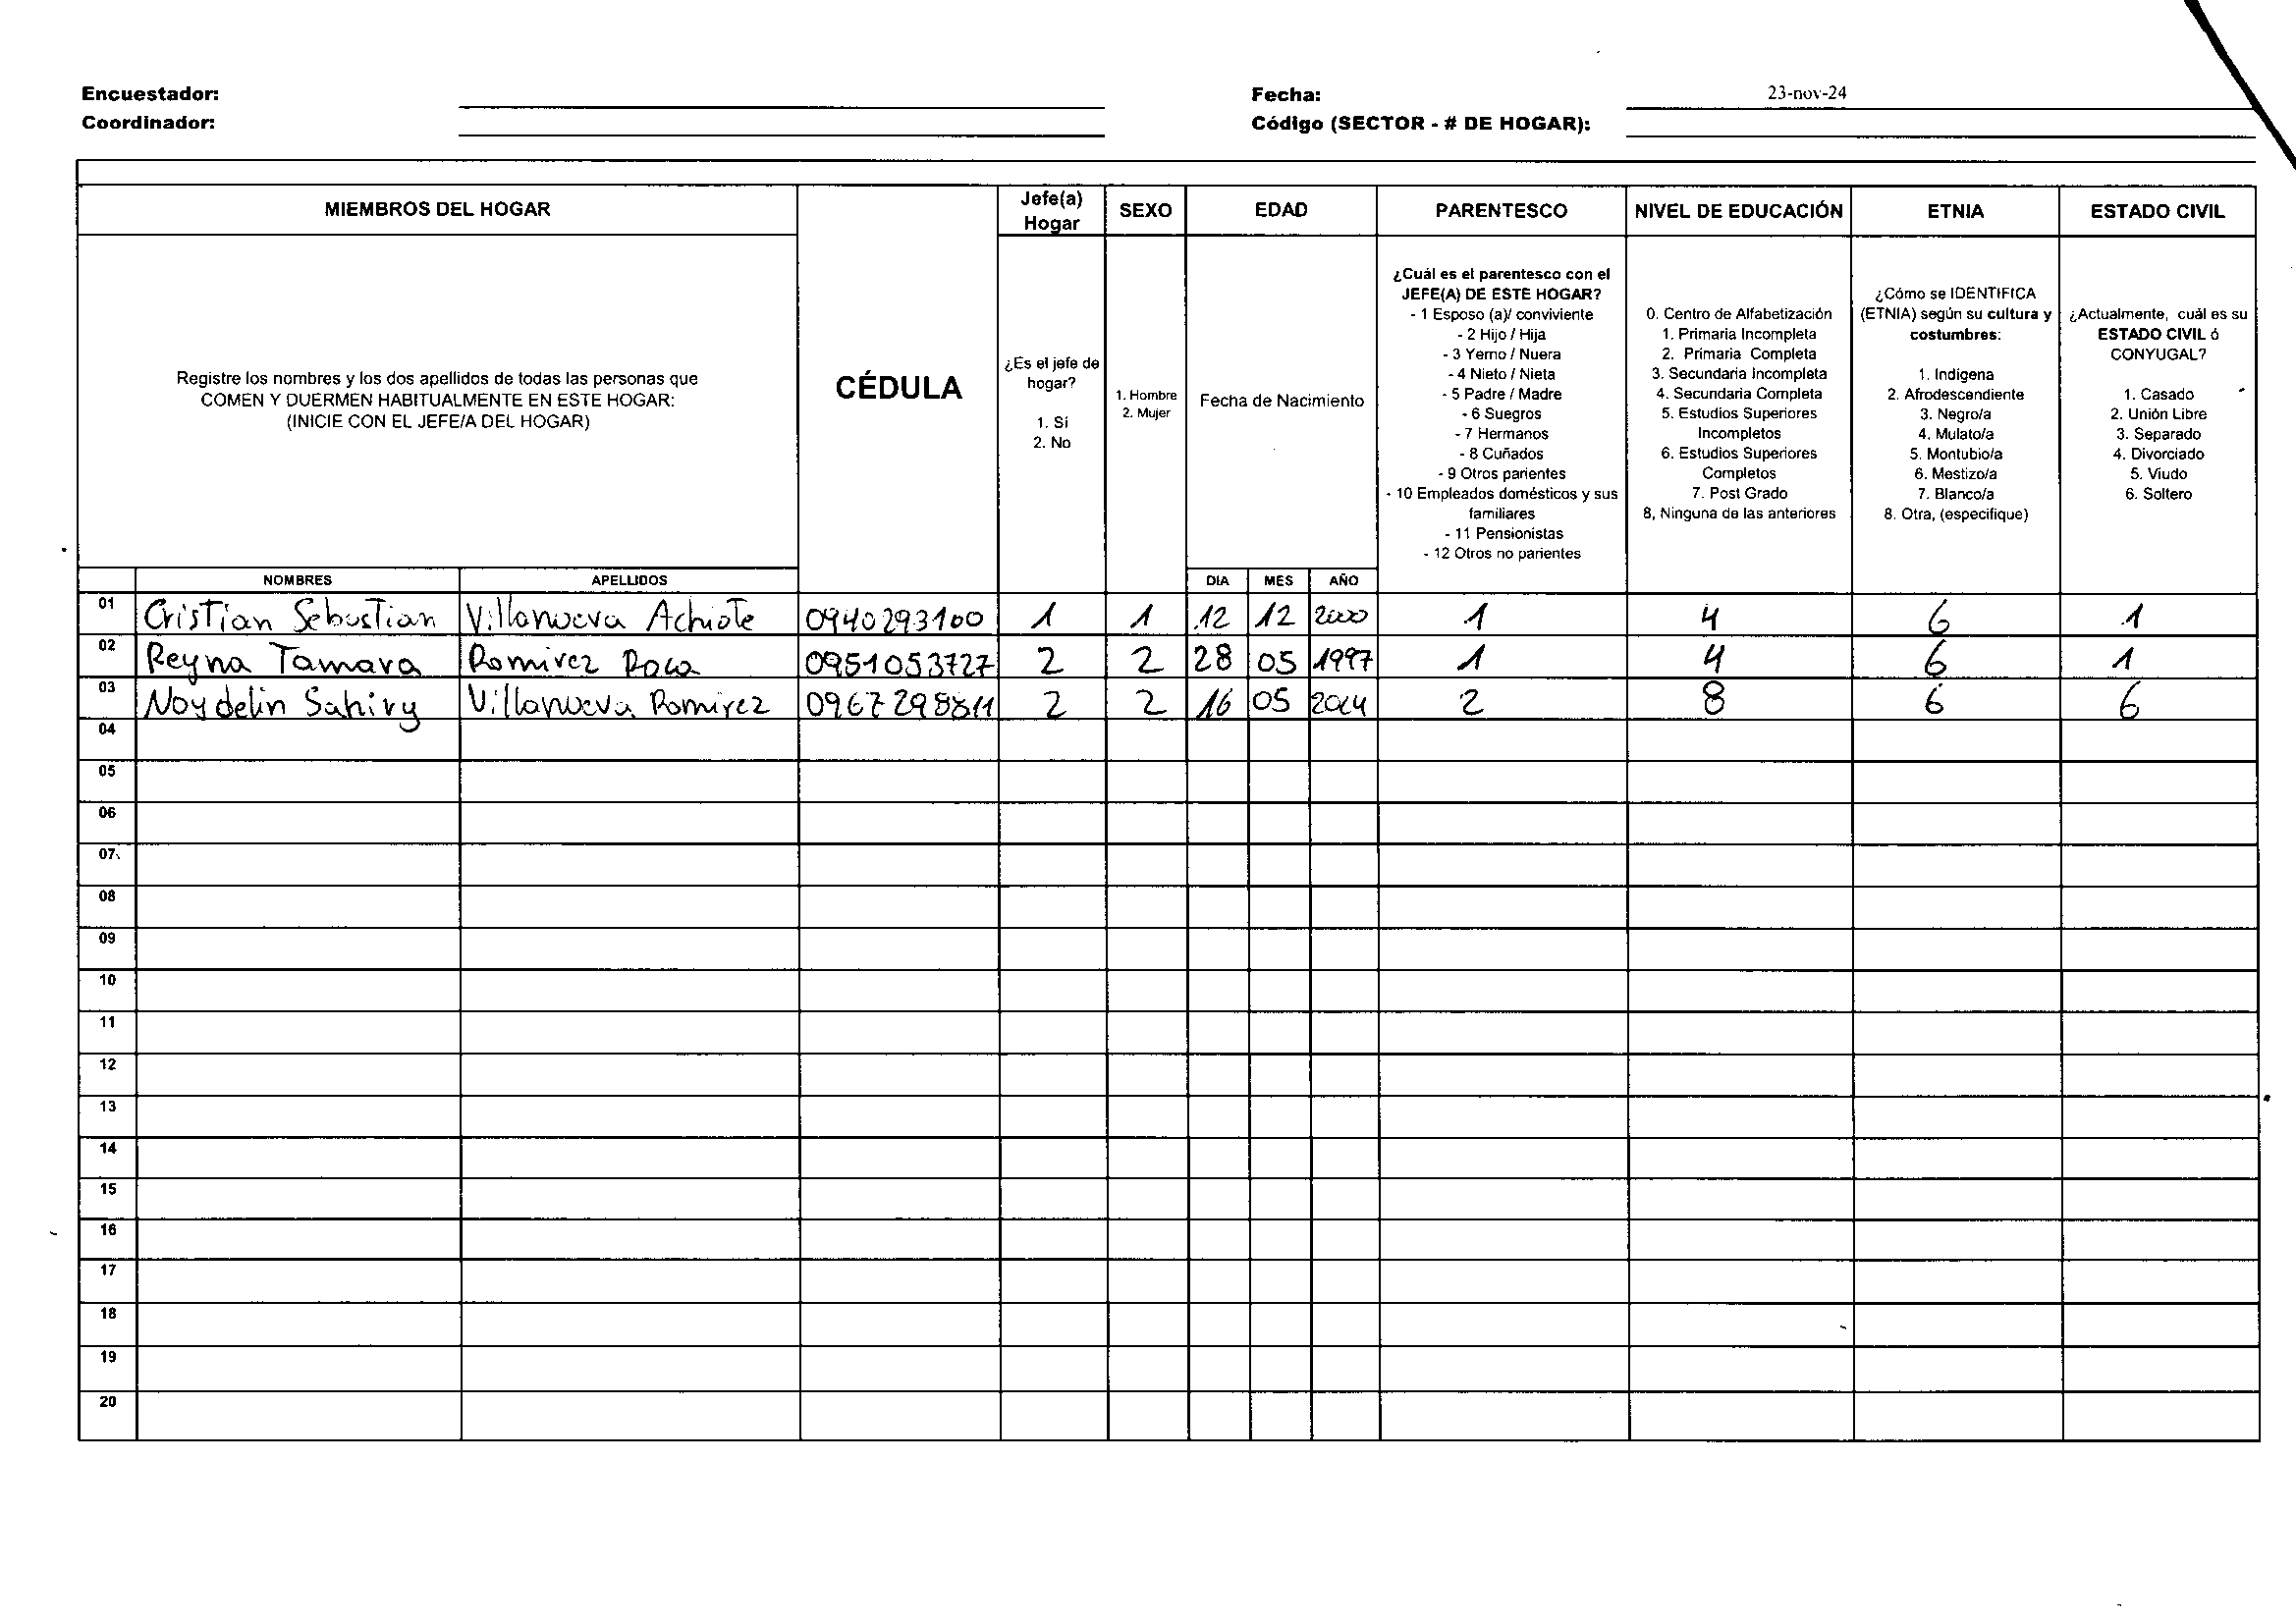 Encuestador: Fecha: 23-nov-24
Coordinador: Código (SECTOR - # DE HOGAR):
MIEMBROS DEL HOGAR
CÉDULA
Jefe(a) Hogar
SEXO
EDAD
PARENTESCO
NIVEL DE EDUCACIÓN
ETNIA
ESTADO CIVIL
Registre los nombres y los dos apellidos de todas las personas que
COMEN Y DUERMEN HABITUALMENTE EN ESTE HOGAR:
(INICIE CON EL JEFE/A DEL HOGAR)
¿Es el jefe de
hogar?
1. Sí
2. No
1. Hombre
2. Mujer
Fecha de Nacimiento
¿Cuál es el parentesco con el
JEFE(A) DE ESTE HOGAR?
- 1 Esposo (a)/ conviviente
- 2 Hijo / Hija
- 3 Yerno / Nuera
- 4 Nieto / Nieta
- 5 Padre / Madre
- 6 Suegros
- 7 Hermanos
- 8 Cuñados
- 9 Otros parientes
- 10 Empleados domésticos y sus
familiares
- 11 Pensionistas
- 12 Otros no parientes
0. Centro de Alfabetización
1. Primaria Incompleta
2. Primaria Completa
3. Secundaria Incompleta
4. Secundaria Completa
5. Estudios Superiores
Incompletos
6. Estudios Superiores
Completos
7. Post Grado
8, Ninguna de las anteriores
¿Cómo se IDENTIFICA
(ETNIA) según su cultura y
costumbres:
1. Indigena
2. Afrodescendiente
3. Negro/a
4. Mulato/a
5. Montubio/a
6. Mestizo/a
7. Blanco/a
8. Otra, (especifique)
¿Actualmente, cuál es su
ESTADO CIVIL ó
CONYUGAL?
1. Casado
2. Unión Libre
3. Separado
4. Divorciado
5. Viudo
6. Soltero
NOMBRES APELLIDOS DIA MES AÑO
01 Cristian Sebastian Villanueva Achiote 0940293100 1 1 12 12 2000 1 4 6 1
02 Reyna Tamara Ramirez Roca 0951053727 2 2 28 05 1997 1 4 6 1
03 Noydelin Sahiry Villanueva Ramirez 0967298811 2 2 16 05 2024 2 8 6 6
04
05
06
07
08
09
10
11
12
13
14
15
16
17
18
19
20